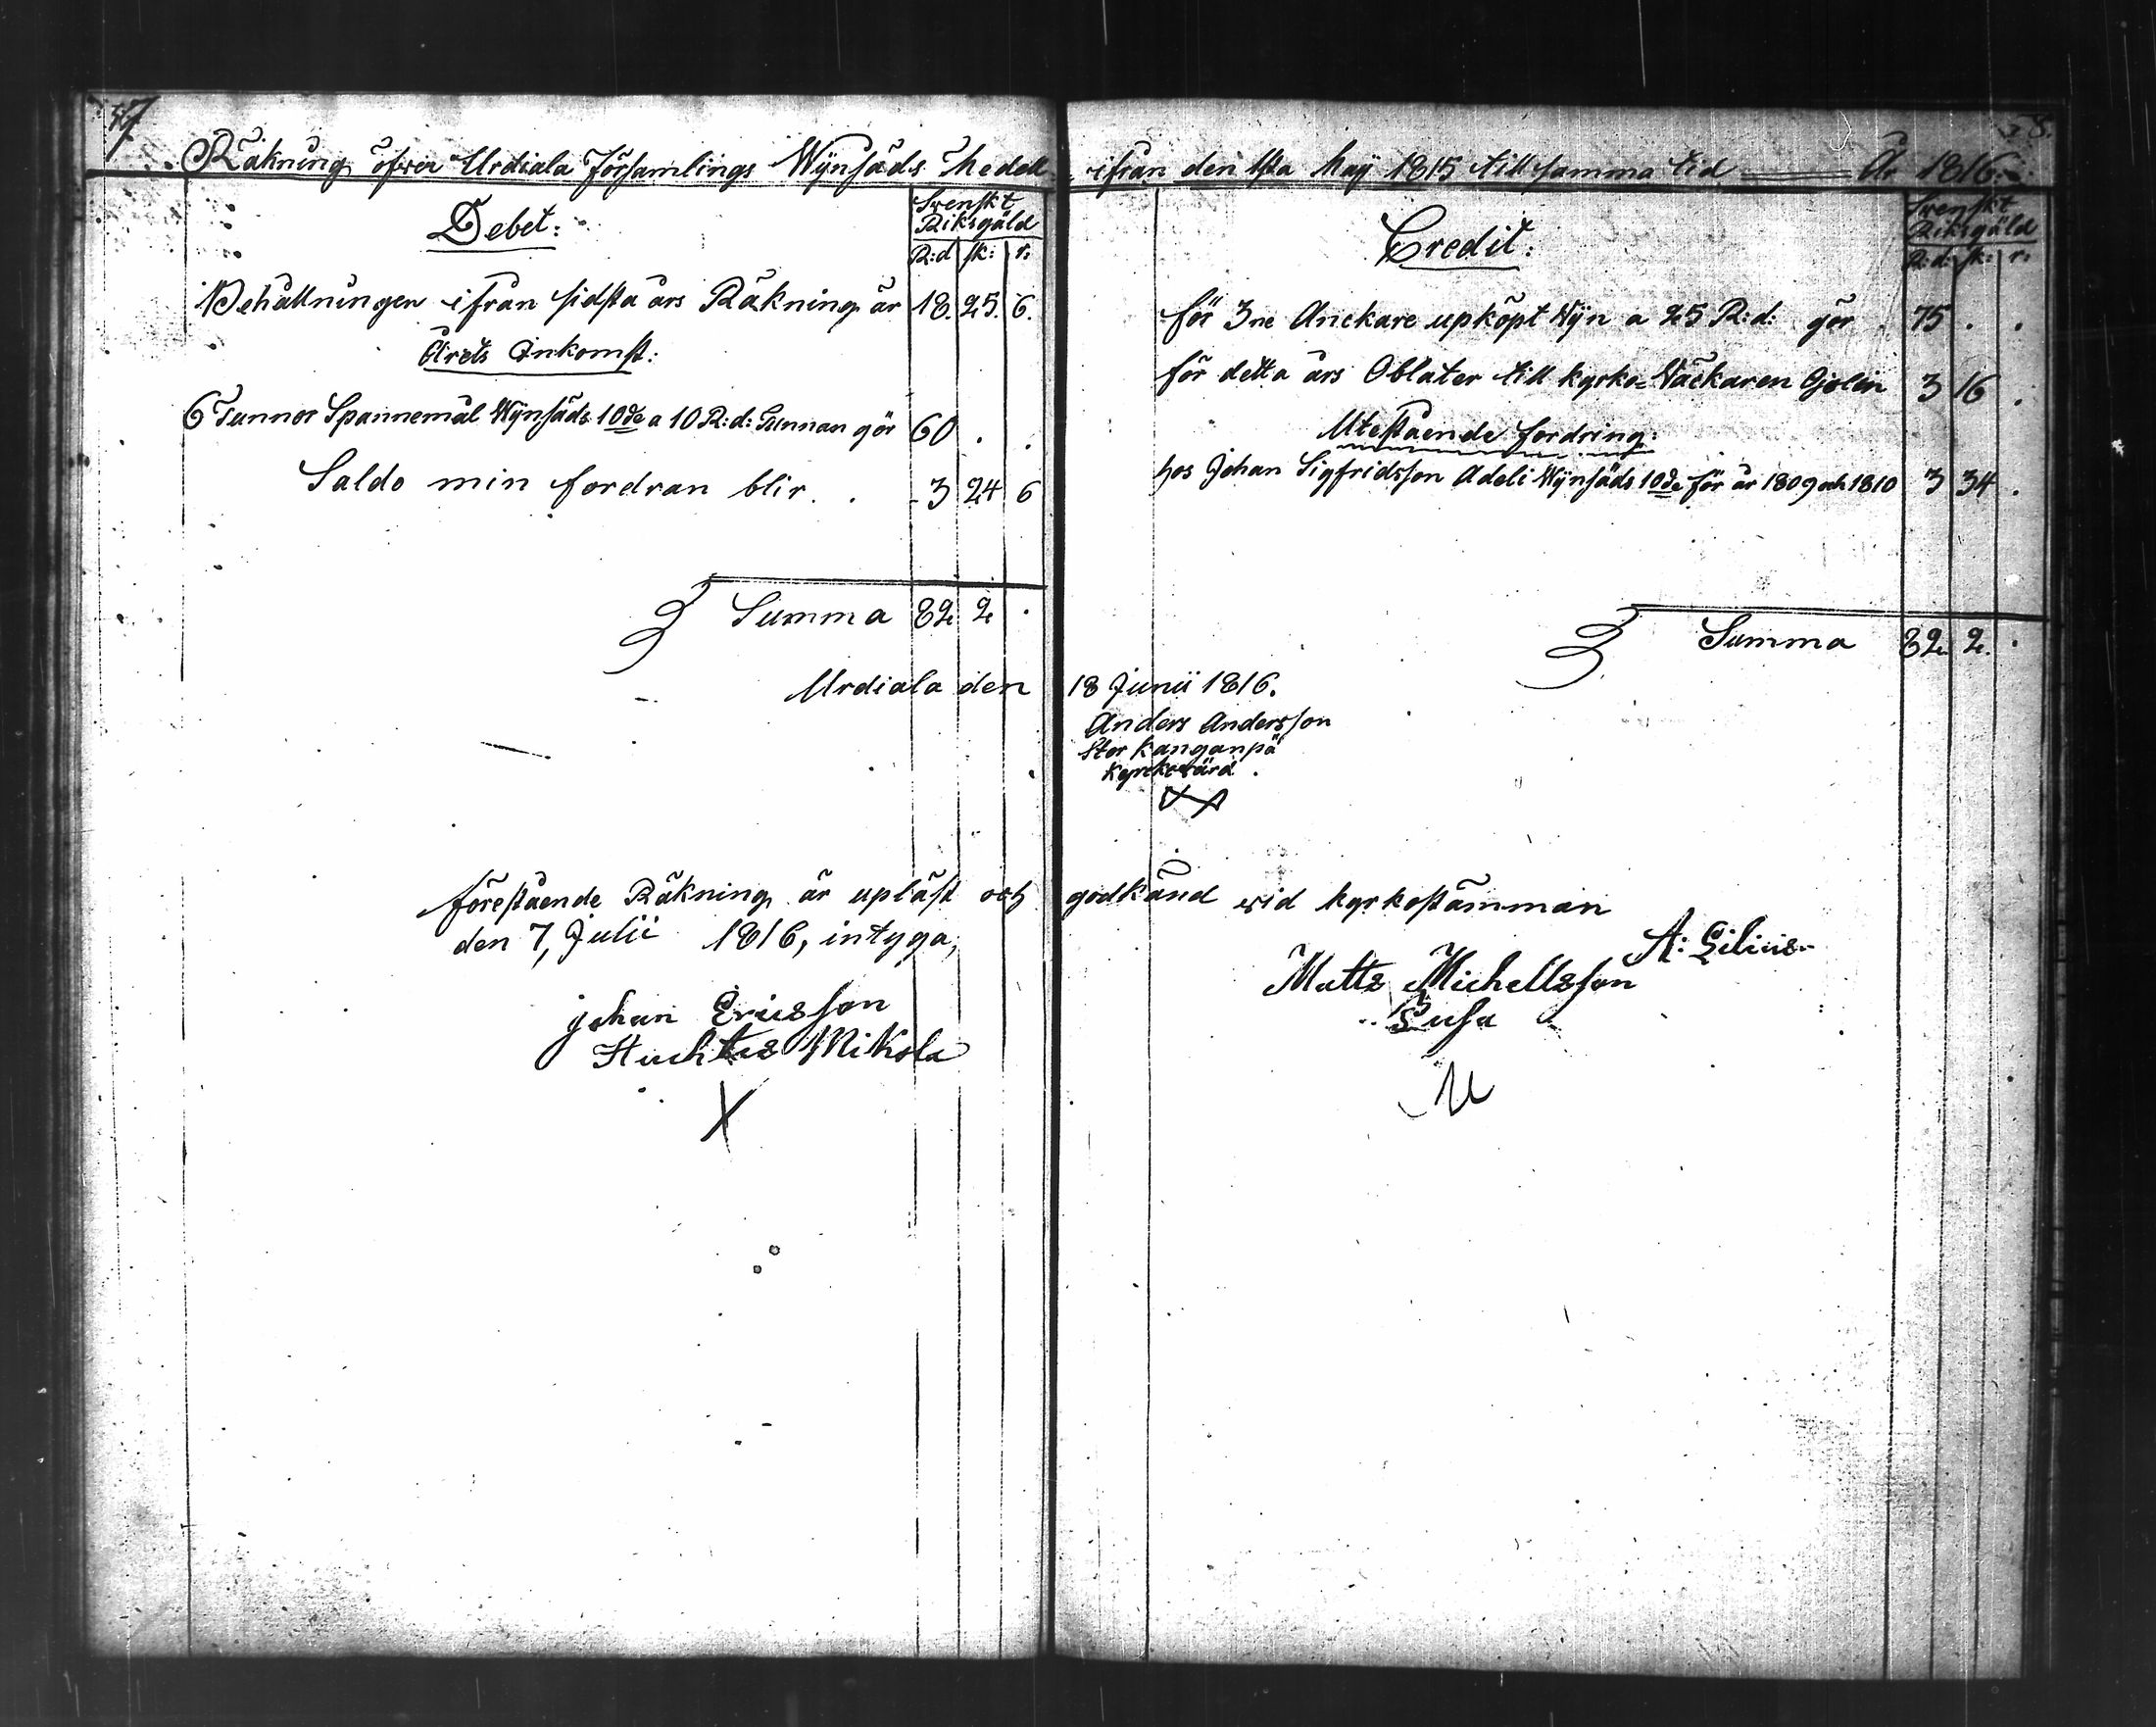 57
Räkning öfver Urdiala Församlings Wÿnsäds Medell
Debet:
Svenskt
Riksgäld
R:d sk: r:
Behållningen ifrån sidsta års Räkning är 18. 25. 6.
Årets Inkomst:
6 Tunnor Spannemål Wÿnsäds 10de a 10 R:d: Tunnan gör 60 . .
Saldo min fordran blir . . 3 24 6
Summa 82 2 .
Urdiala den
förestående Räkning är upläst och
den 7, Julii 1816, intyga,
johan Ericsson
Huchtis Mikola
X
58.
ifrån den 1sta Maÿ 1815 till samma tid År 1816.
Credit:
Svenskt
Riksgäld
R:d: sk: r:
för 3ne Anckare upköpt Wÿn a 25 R:d: gör 75 . .
för detta års Oblater till kyrko=Väckaren Gjolin 3 16 .
Utestående fordring:
hos Johan Sigfridsson Adeli Wÿnsäds 10de för år 1809 och 1810 3 34 .
Summa 82 2. .
18 Junii 1816.
Anders Andersson
Stor kanganpä
kyrkovärd.
godkänd vid kyrkostämman
A: Lilius
Matts Michellsson
Susa
M